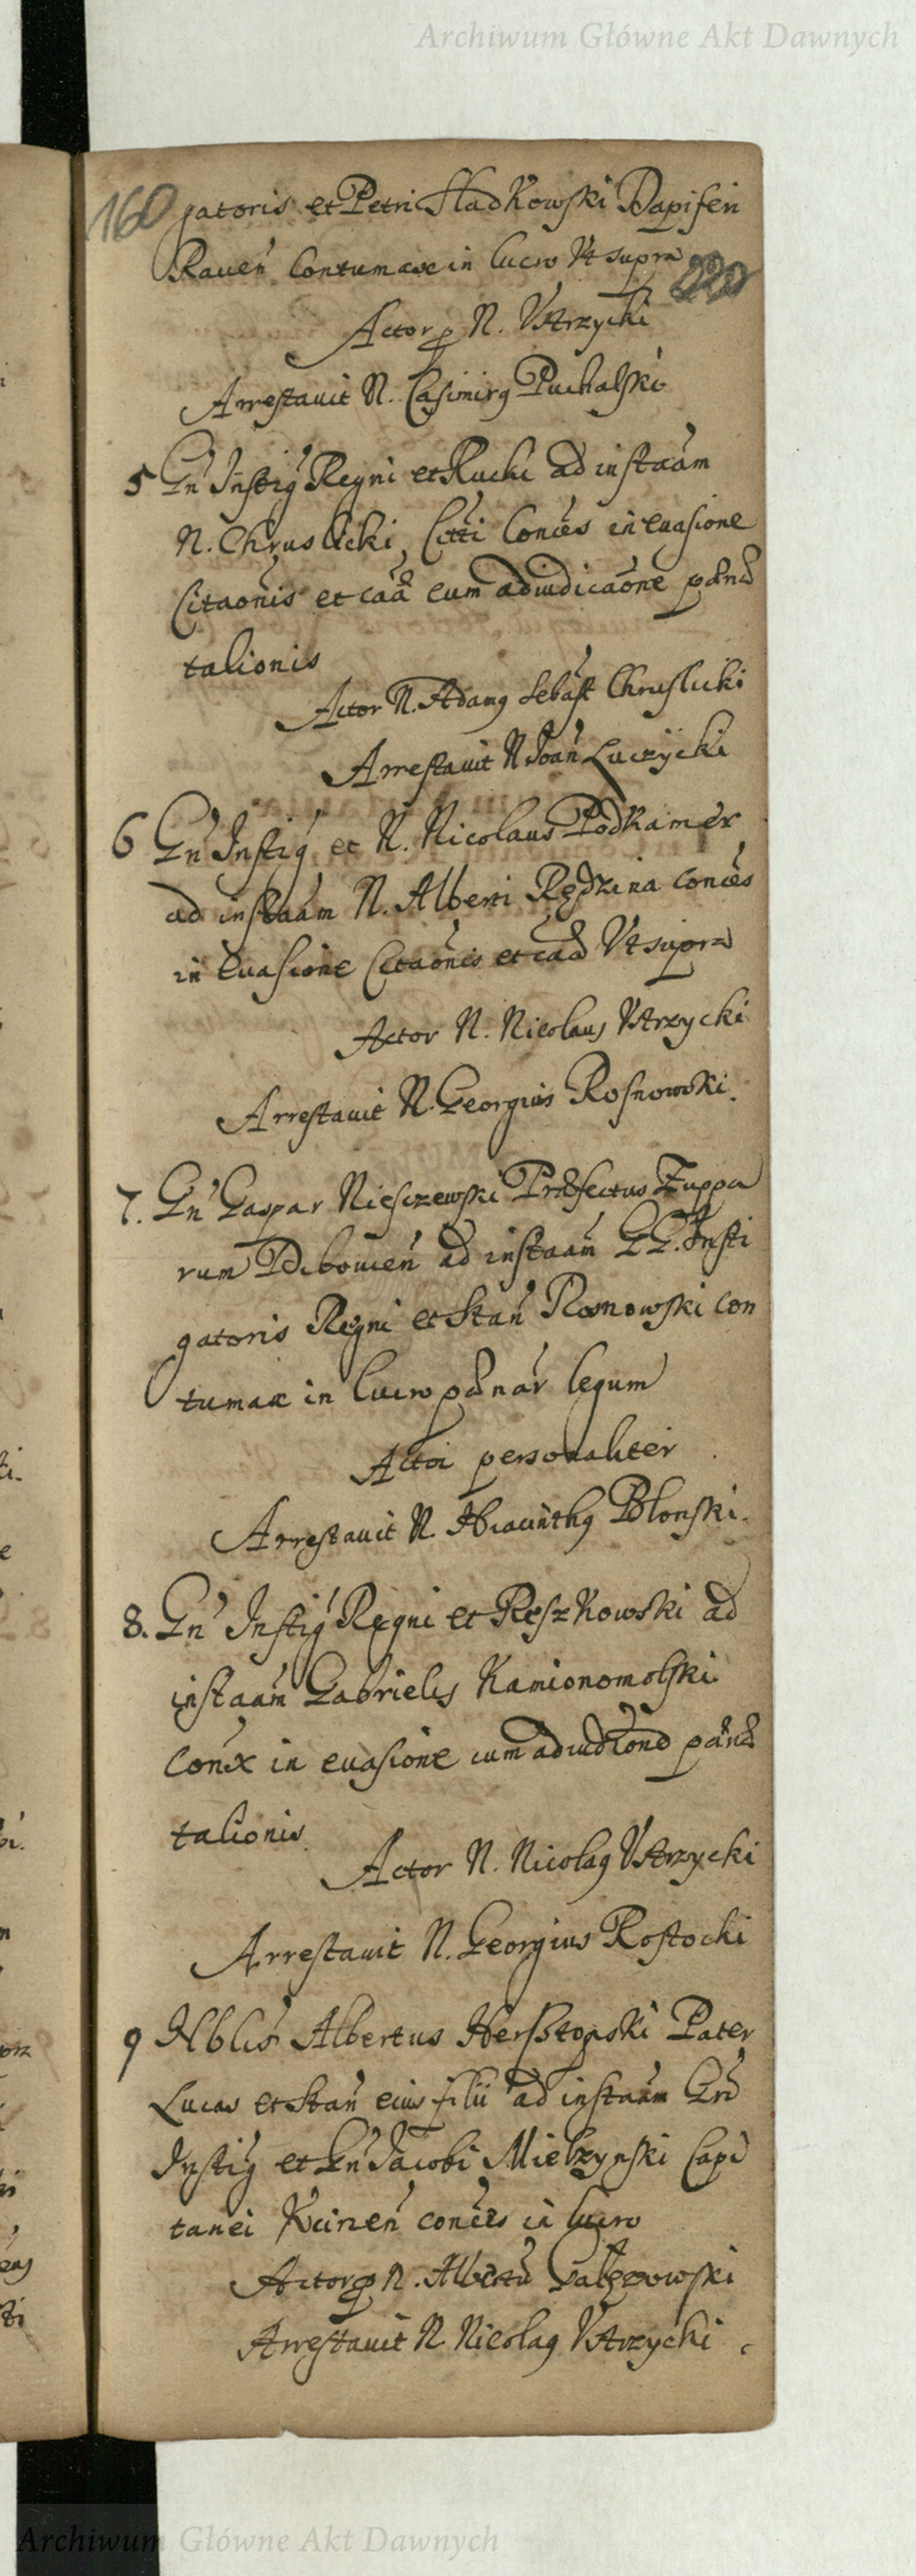 Archiwum Główne Akt Dawnych
160 gatoris et Petri Sladkowski Dapiferi
Raueń Contumax in lucro Vt supra
220
Actor p N. Vstrzycki
Arrestauit N. Casimirꝯ Puchalski
5 Gń Instigꝯ Regni et Rucki ad instaam
N. Chruslicki Citti Conces in euasione
Citaonis et caa cum adiudicaone paenae
talionis
Actor N. Adamꝯ Sebast Chruslicki
Arrestauit N Joań Luczycki
6 Gń Instigꝯ et N. Nicolaus Podkamer
ad instaam N. Alberti Rędzina conces
in euasione Citaonis et caa Vt supra
Actor N. Nicolaus Vstrzycki
Arrestauit N. Georgius Rosnowski.
7. Gń Gaspar Niesczewski Praefectus Zuppa
rum Dibouień ad instaam GG. Insti
gatoris Regni et Stań Rosnowski con
tumax in lucro paenar legum
Actor personaliter
Arrestauit N. Hiacinthꝯ Polonski.
8. Gń Instigꝯ Regni et Reszkowski ad
instaam Gabrielis Kamionomolski
Conx in euasione cum adiudcone paenae
talionis
Actor N. Nicolaꝯ Vstrzycki
Arrestauit N. Georgius Rostocki
9 Nblis Albertus Herstopski Pater
Lucas et Stań eius filii ad instaam Grd
Instigꝯ et Gń Jacobi Mielzynski Capi
tanei Kcineń conces in lucro
Actor p N. Albertu
Arrestauit N Nicolaꝯ Vstrzycki
Archiwum Główne Akt Dawnych